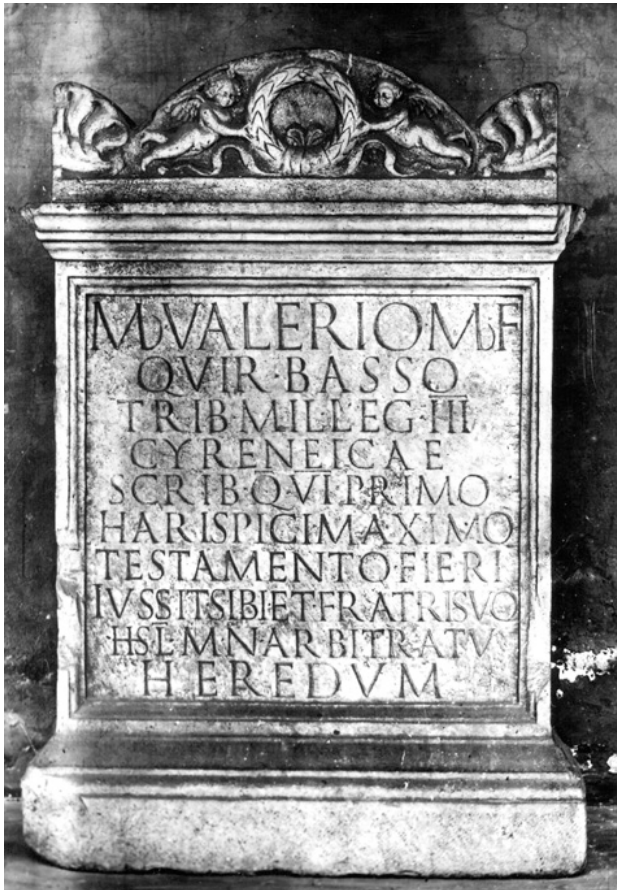 M·VALERIO·M·F
QVIR·BASSO
TRIB·MIL·LEG·III
CYRENEICAE
SCRIB·Q·VI·PRIMO
HARISPICI MAXIMO
TESTAMENTO·FIERI
IVSSIT SIBI ET FRATRI SVO
HS L M N ARBITRATV
HEREDVM